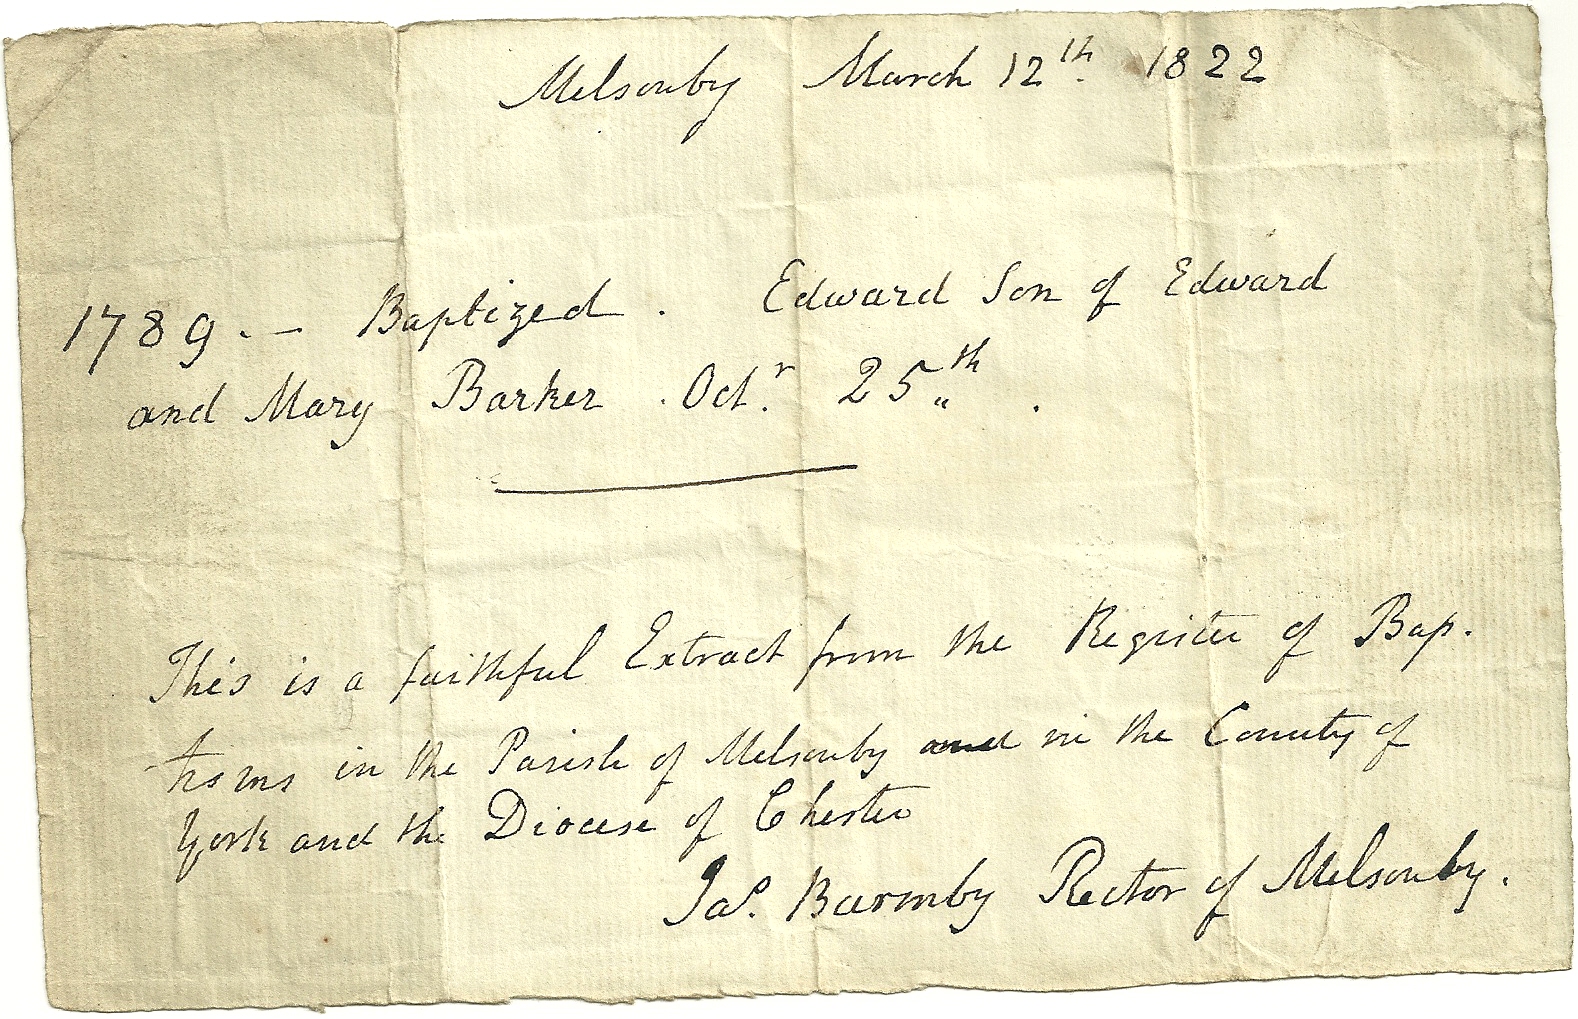 Melsonby March 12th 1822
1789. — Baptized. Edward Son of Edward
and Mary Barker. Octr. 25th.
This is a faithful Extract from the Register of Bap-
tisms in the Parish of Melsonby and in the County of
York and the Diocese of Chester
Jas. Barmby Rector of Melsonby.